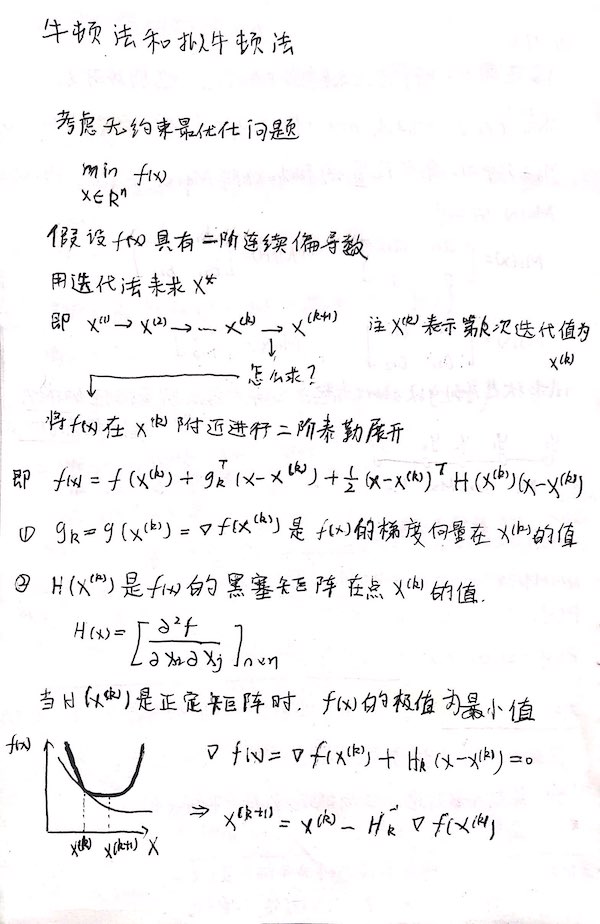 牛顿法和拟牛顿法
考虑无约束最优化问题
min f(x)
x∈Rⁿ
假设f(x)具有二阶连续偏导数
用迭代法来求 x*
即 x⁽¹⁾→x⁽²⁾→… x⁽ᵏ⁾→x⁽ᵏ⁺¹⁾ 注 x⁽ᵏ⁾表示第k次迭代值为
x⁽ᵏ⁾
怎么求?
将f(x)在 x⁽ᵏ⁾ 附近进行二阶泰勒展开
即 f(x) = f(x⁽ᵏ⁾) + gₖᵀ(x-x⁽ᵏ⁾) + ½(x-x⁽ᵏ⁾)ᵀ H(x⁽ᵏ⁾)(x-x⁽ᵏ⁾)
① gₖ = g(x⁽ᵏ⁾) = ∇f(x⁽ᵏ⁾) 是 f(x)的梯度向量在 x⁽ᵏ⁾的值
② H(x⁽ᵏ⁾)是f(x)的黑塞矩阵在点 x⁽ᵏ⁾ 的值.
H(x) = [∂²f / ∂xᵢ∂xⱼ]n×n
当H(x⁽ᵏ⁾)是正定矩阵时. f(x)的极值为最小值
f(x)
∇f(x) = ∇f(x⁽ᵏ⁾) + Hₖ(x-x⁽ᵏ⁾) = 0
⇒ x⁽ᵏ⁺¹⁾ = x⁽ᵏ⁾ - Hₖ⁻¹ ∇f(x⁽ᵏ⁾)
x⁽ᵏ⁾ x⁽ᵏ⁺¹⁾ x